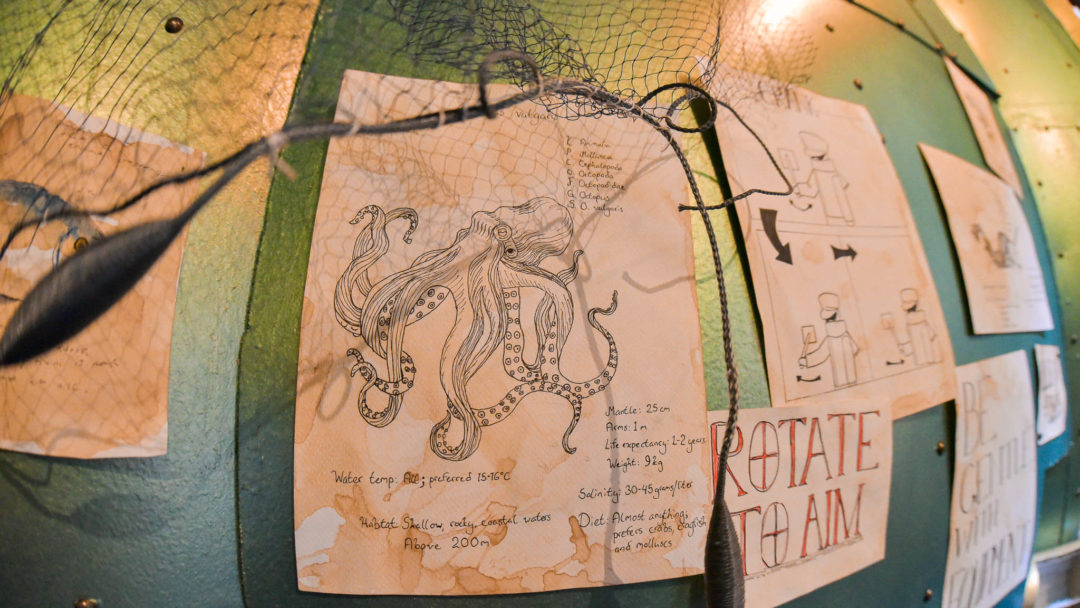 vulgaris
K. Animalia
P. Mollusca
C. Cephalopoda
O. Octopoda
F. Octopodidae
G. Octopus
S. O. vulgaris
Mantle: 25 cm
Arms: 1 m
Life expectancy: 1-2 years
Weight: 9 kg
Water temp: All; preferred 15-16°C
Salinity: 30-45 grams/liter
Habitat: Shallow, rocky, coastal waters
Above 200m
Diet: Almost anything;
prefers crabs, crayfish
and molluscs
ROTATE
TO AIM
BE
GENTLE
WITH
EQUIPMENT